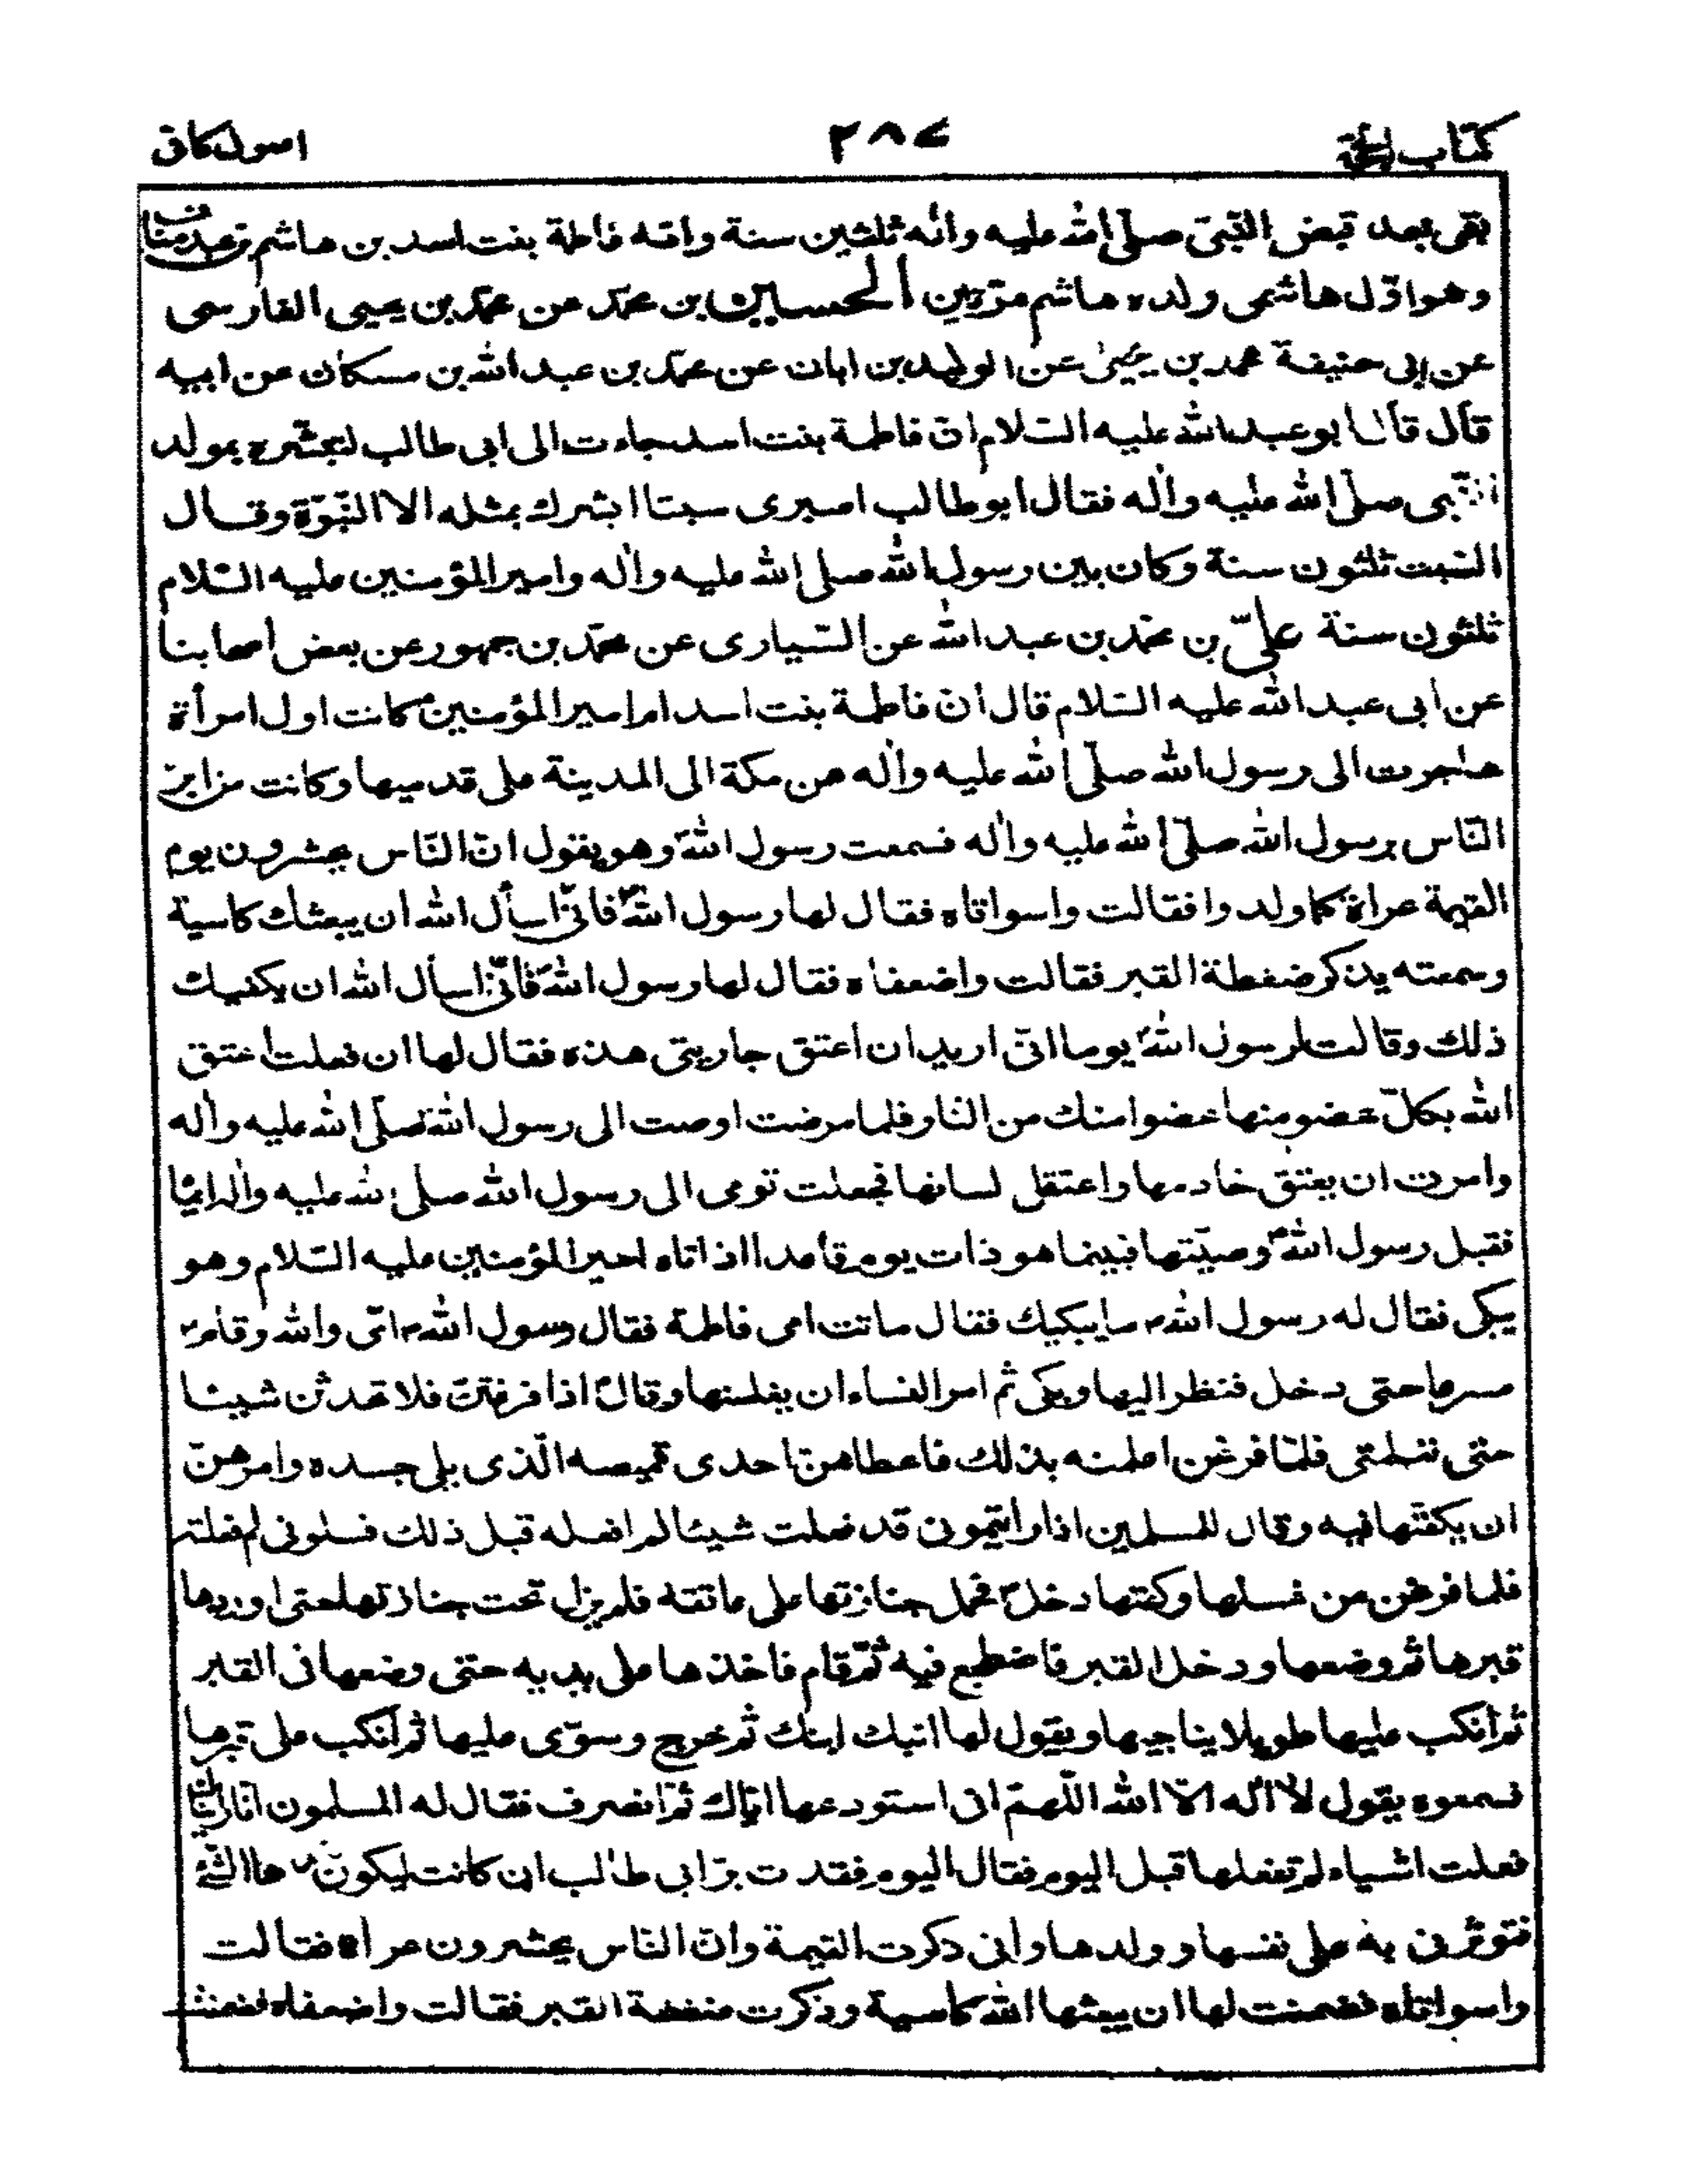 كتاب الحجة
٢٨٤
اصول كافى
بقى بعد قبض النبى صلى الله عليه واله ثلثين سنة وامه فاطمة بنت اسد بن هاشم بن عبد مناف
وهو اول هاشمى ولده هاشم مرتين الحسين بن محمد عن محمد بن يحيى الفارسى
عن ابى حنيفة محمد بن يحيى عن الوليد بن ابان عن محمد بن عبد الله بن مسكان عن ابيه
قال قال ابو عبد الله عليه السلام ان فاطمة بنت اسد جاءت الى ابى طالب لتبشره بمولد
النبى صلى الله عليه واله فقال ابو طالب اصبرى سبتا ابشرك بمثله الا النبوة وقال
السبت ثلثون سنة وكان بين رسول الله صلى الله عليه واله وامير المؤمنين عليه السلام
ثلثون سنة على بن محمد بن عبد الله عن السيارى عن محمد بن جمهور عن بعض اصحابنا
عن ابى عبد الله عليه السلام قال ان فاطمة بنت اسد ام امير المؤمنين كانت اول امرأة
هاجرت الى رسول الله صلى الله عليه واله من مكة الى المدينة على قدميها وكانت من ابر
الناس برسول الله صلى الله عليه واله فسمعت رسول الله وهو يقول ان الناس يحشرون يوم
القيمة عراة كما ولدوا فقالت واسواتاه فقال لها رسول الله فانى اسأل الله ان يبعثك كاسية
وسمعته يذكر ضغطة القبر فقالت واضعفاه فقال لها رسول الله فانى اسأل الله ان يكفيك
ذلك وقالت لرسول الله يوما انى اريد ان اعتق جاريتى هذه فقال لها ان فعلت اعتق
الله بكل عضو منها عضوا منك من النار فلما مرضت اوصت الى رسول الله صلى الله عليه واله
وامرت ان يعتق خادمها واعتقل لسانها فجعلت تومى الى رسول الله صلى الله عليه واله ايماء
فقبل رسول الله وصيتها فبينما هو ذات يوم قاعد اذ اتاه امير المؤمنين عليه السلام وهو
يبكى فقال له رسول الله ما يبكيك فقال ماتت امى فاطمة فقال رسول الله امى والله وقام
مسرعا حتى دخل فنظر اليها وبكى ثم امر النساء ان يغسلنها وقال اذا فرغتن فلا تحدثن شيئا
حتى تعلمننى فلما فرغن اعلمنه بذلك فاعطاهن احدى قميصه الذى يلى جسده وامرهن
ان يكفنها فيه وقال للمسلمين اذا رايتمونى قد فعلت شيئا لم افعله قبل ذلك فسلونى لم فعلته
فلما فرغن من غسلها وكفنها دخل فحمل جنازتها على عاتقه فلم يزل تحت جنازتها حتى اوردها
قبرها ثم وضعها ودخل القبر فاضطجع فيه ثم قام فاخذها على يديه حتى وضعها فى القبر
ثم انكب عليها طويلا يناجيها ويقول لها ابنك ابنك ثم خرج وسوى عليها ثم انكب على قبرها
فسمعوه يقول لا اله الا الله اللهم انى استودعها اياك ثم انصرف فقال له المسلمون انا رايناك
فعلت اشياء لم تفعلها قبل اليوم فقال اليوم فقدت بر ابى طالب ان كانت ليكون عندها الشئ
فتوثرنى به على نفسها وولدها وانى ذكرت القيمة وان الناس يحشرون عراة فقالت
واسواتاه فضمنت لها ان يبعثها الله كاسية وذكرت ضغطة القبر فقالت واضعفاه فضمنت